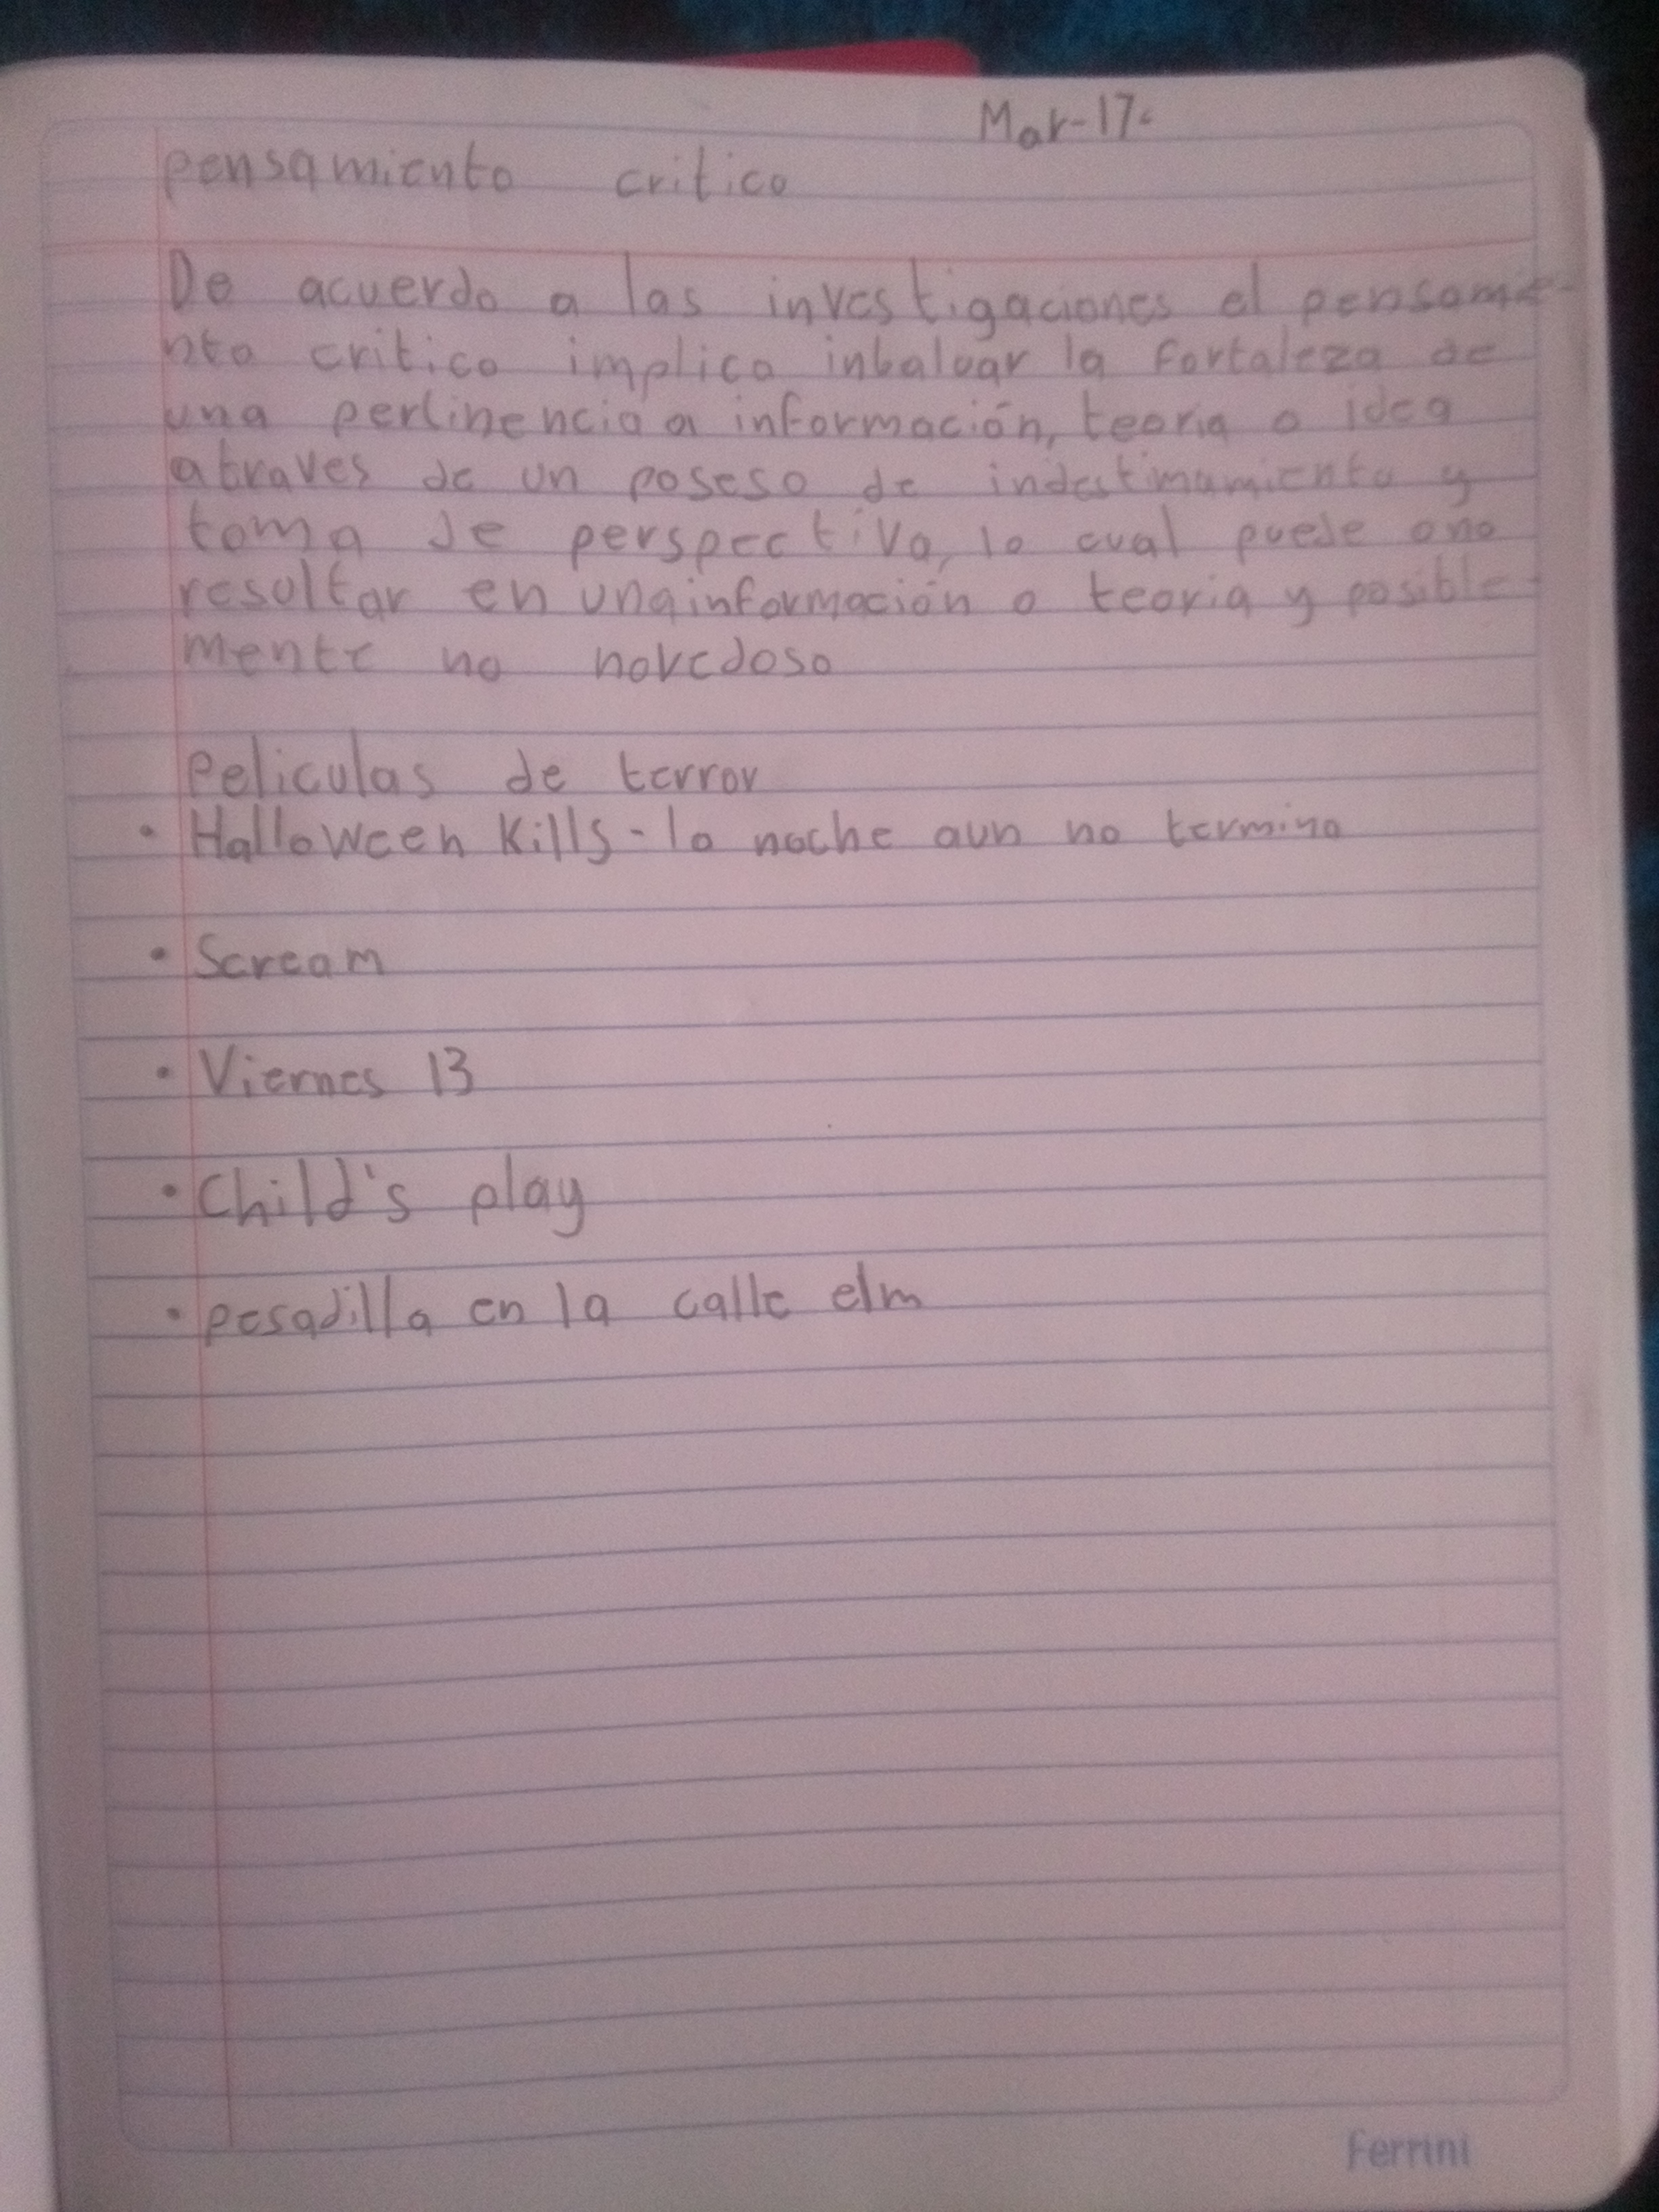 Mar-17-
pensamiento critico
De acuerdo a las investigaciones el pensamie-
nto critico implica inbaluar la fortaleza de
una pertinencia a información, teoria o idea
atraves de un poseso de
toma de perspectiva, lo cual puede ono
resoltar en unainformación o teoria y posible-
mente no novedoso
Peliculas de terror
• Halloween Kills - la noche aun no termina
• Scream
• Viernes 13
• Child's play
• pesadilla en la calle elm
Ferrini